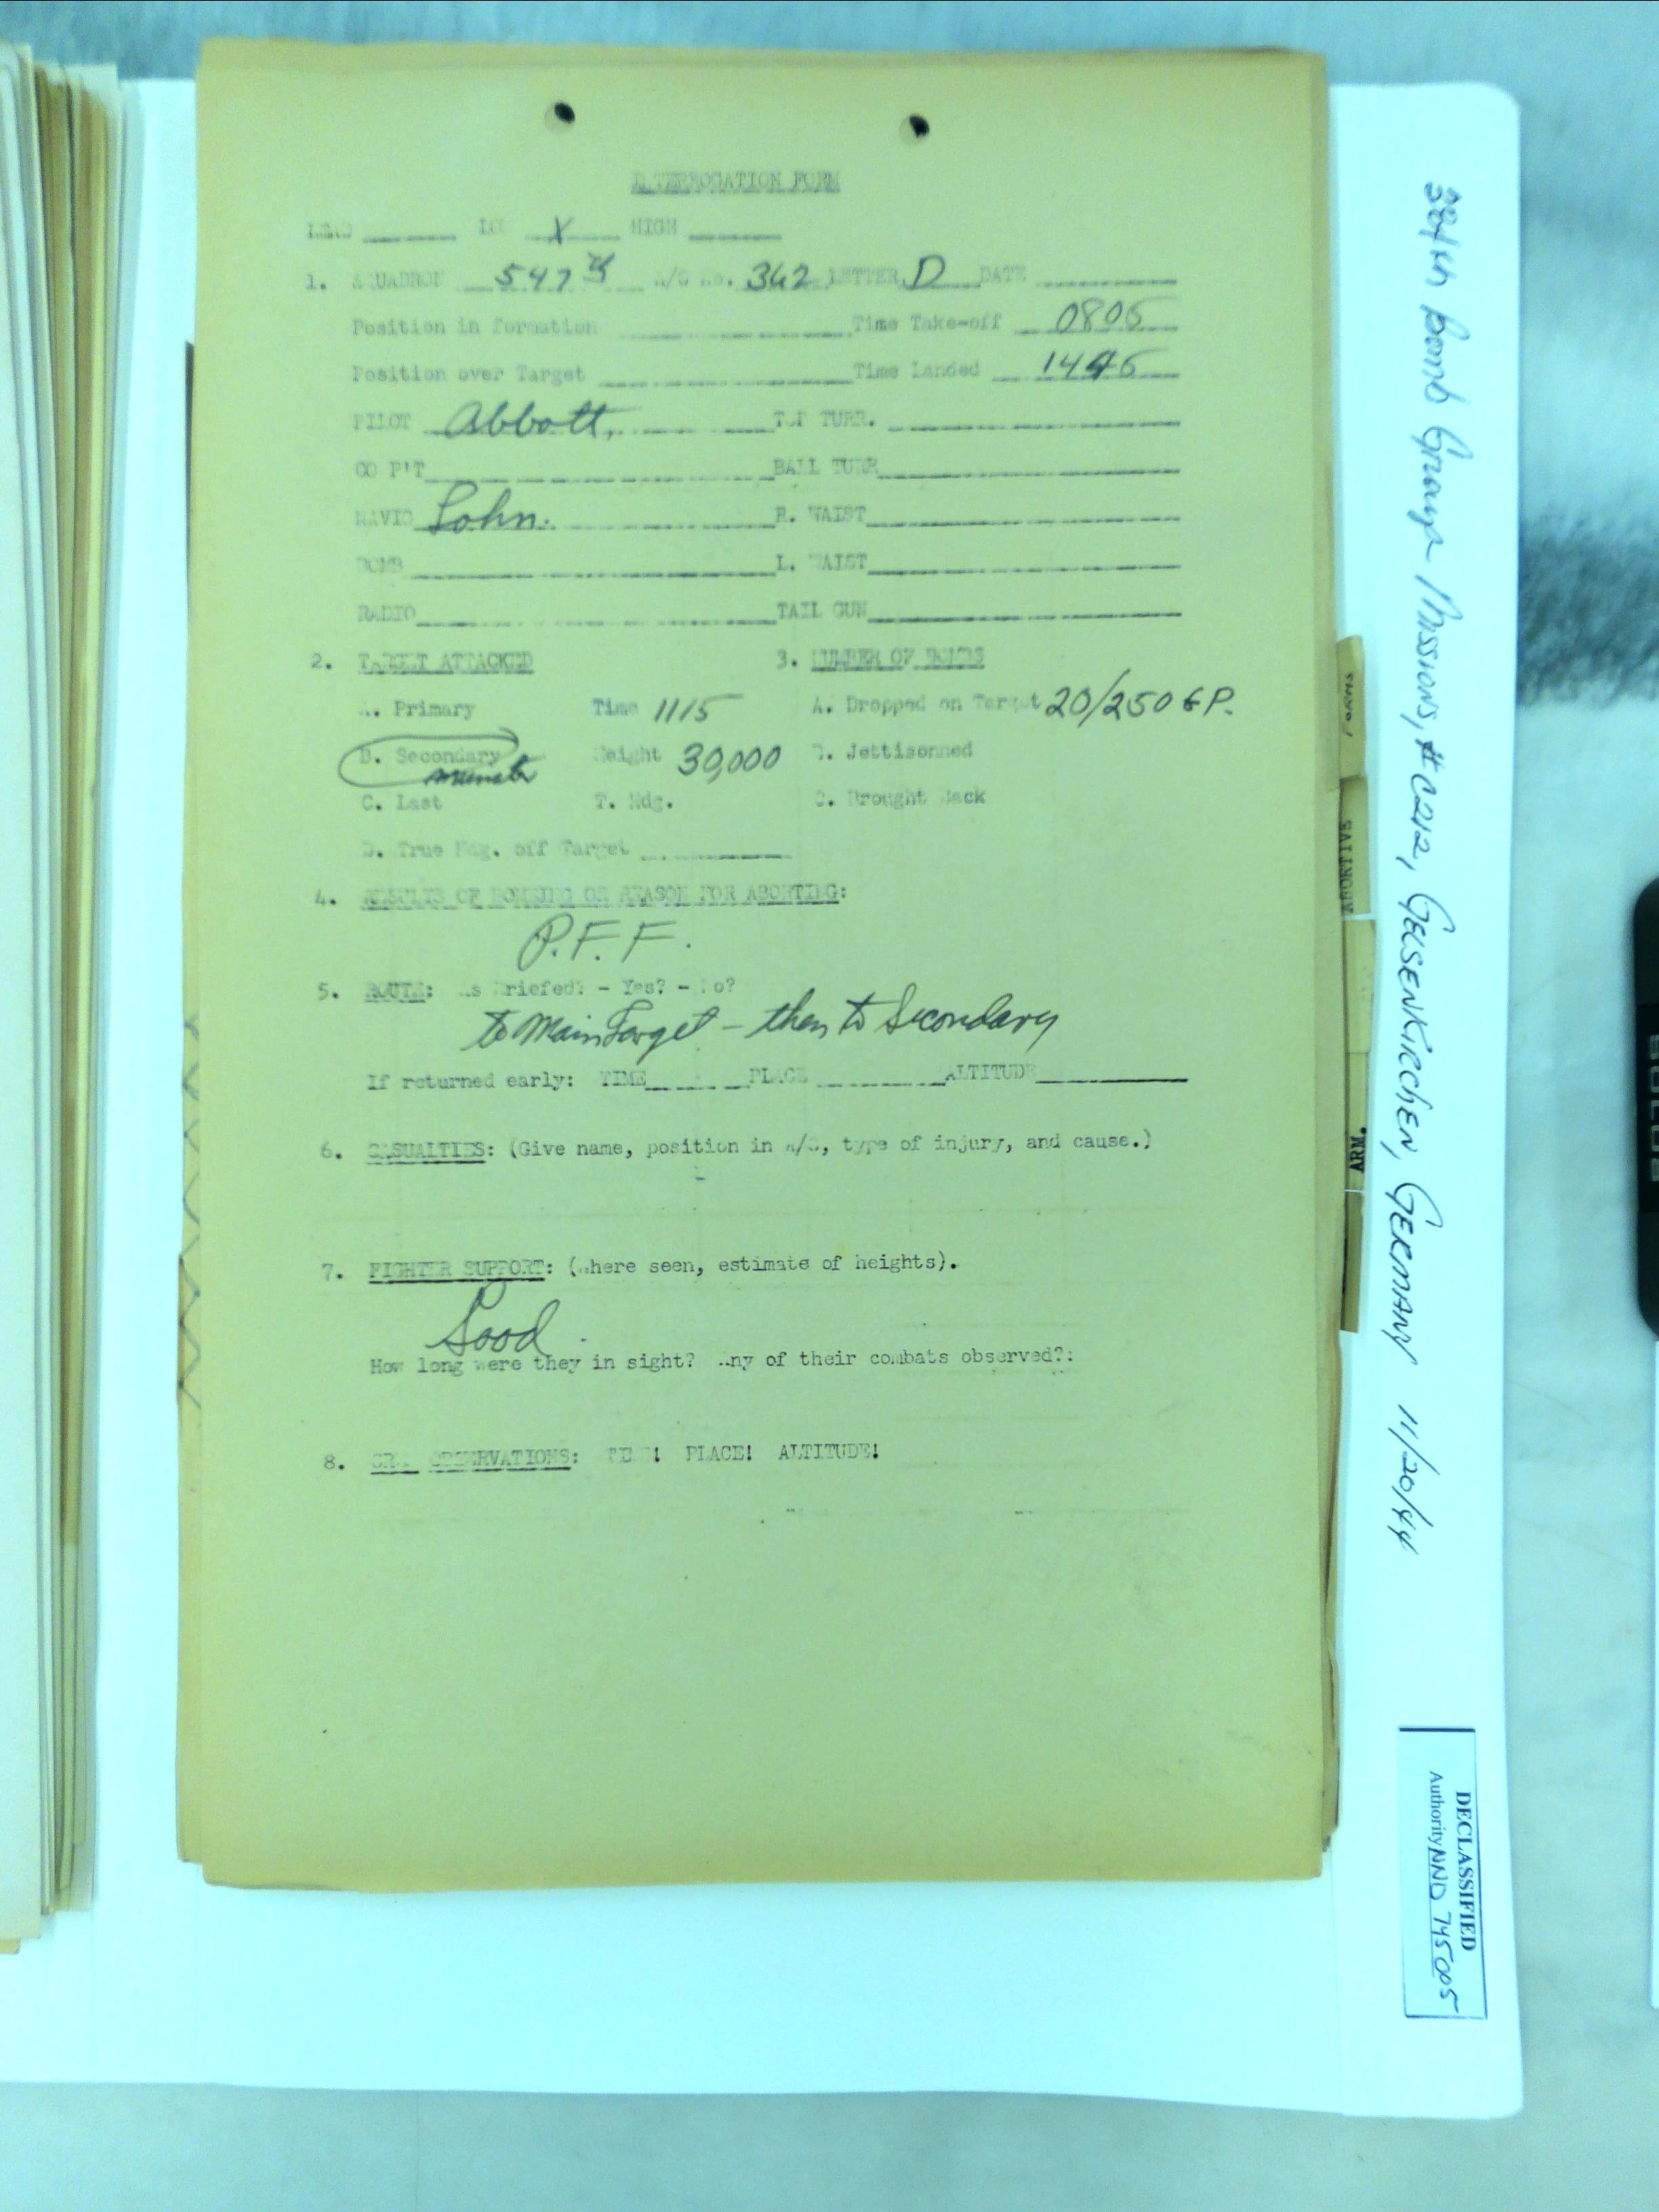 INTERROGATION FORM
LEAD ______ LOW X HIGH ______
1. SQUADRON 547th A/C No. 362 LETTER D DATE ______
Position in formation ______ Time Take-off 0805
Position over Target ______ Time Landed 1446
PILOT Abbott, TOP TURR. ______
CO P'T ______ BALL TURR ______
NAVIG ______ R. WAIST ______
BOMB ______ L. WAIST ______
RADIO ______ TAIL GUN ______
2. TARGET ATTACKED 3. NUMBER OF BOMBS
A. Primary Time 1115 A. Dropped on Target 20/250 GP.
B. Secondary Height 30,000 B. Jettisonned
Munster
C. Last T. Hdg. C. Brought Back
D. True Hdg. off Target ______
4. RESULTS OF BOMBING OR REASON FOR ABORTING:
P.F.F.
5. ROUTE: As Briefed? - Yes? - No?
to Main Target - then to Secondary
If returned early: TIME ______ PLACE ______ ALTITUDE ______
6. CASUALTIES: (Give name, position in A/C, type of injury, and cause.)
7. FIGHTER SUPPORT: (Where seen, estimate of heights).
Good.
How long were they in sight? Any of their combats observed?:
8. OBSERVATIONS: TIME! PLACE! ALTITUDE!
FORMS
ABORTIVE
ARM.
384th Bomb Group Missions, #C212, GELSENKIRCHEN, GERMANY 11/20/44
DECLASSIFIED
Authority NND 745005